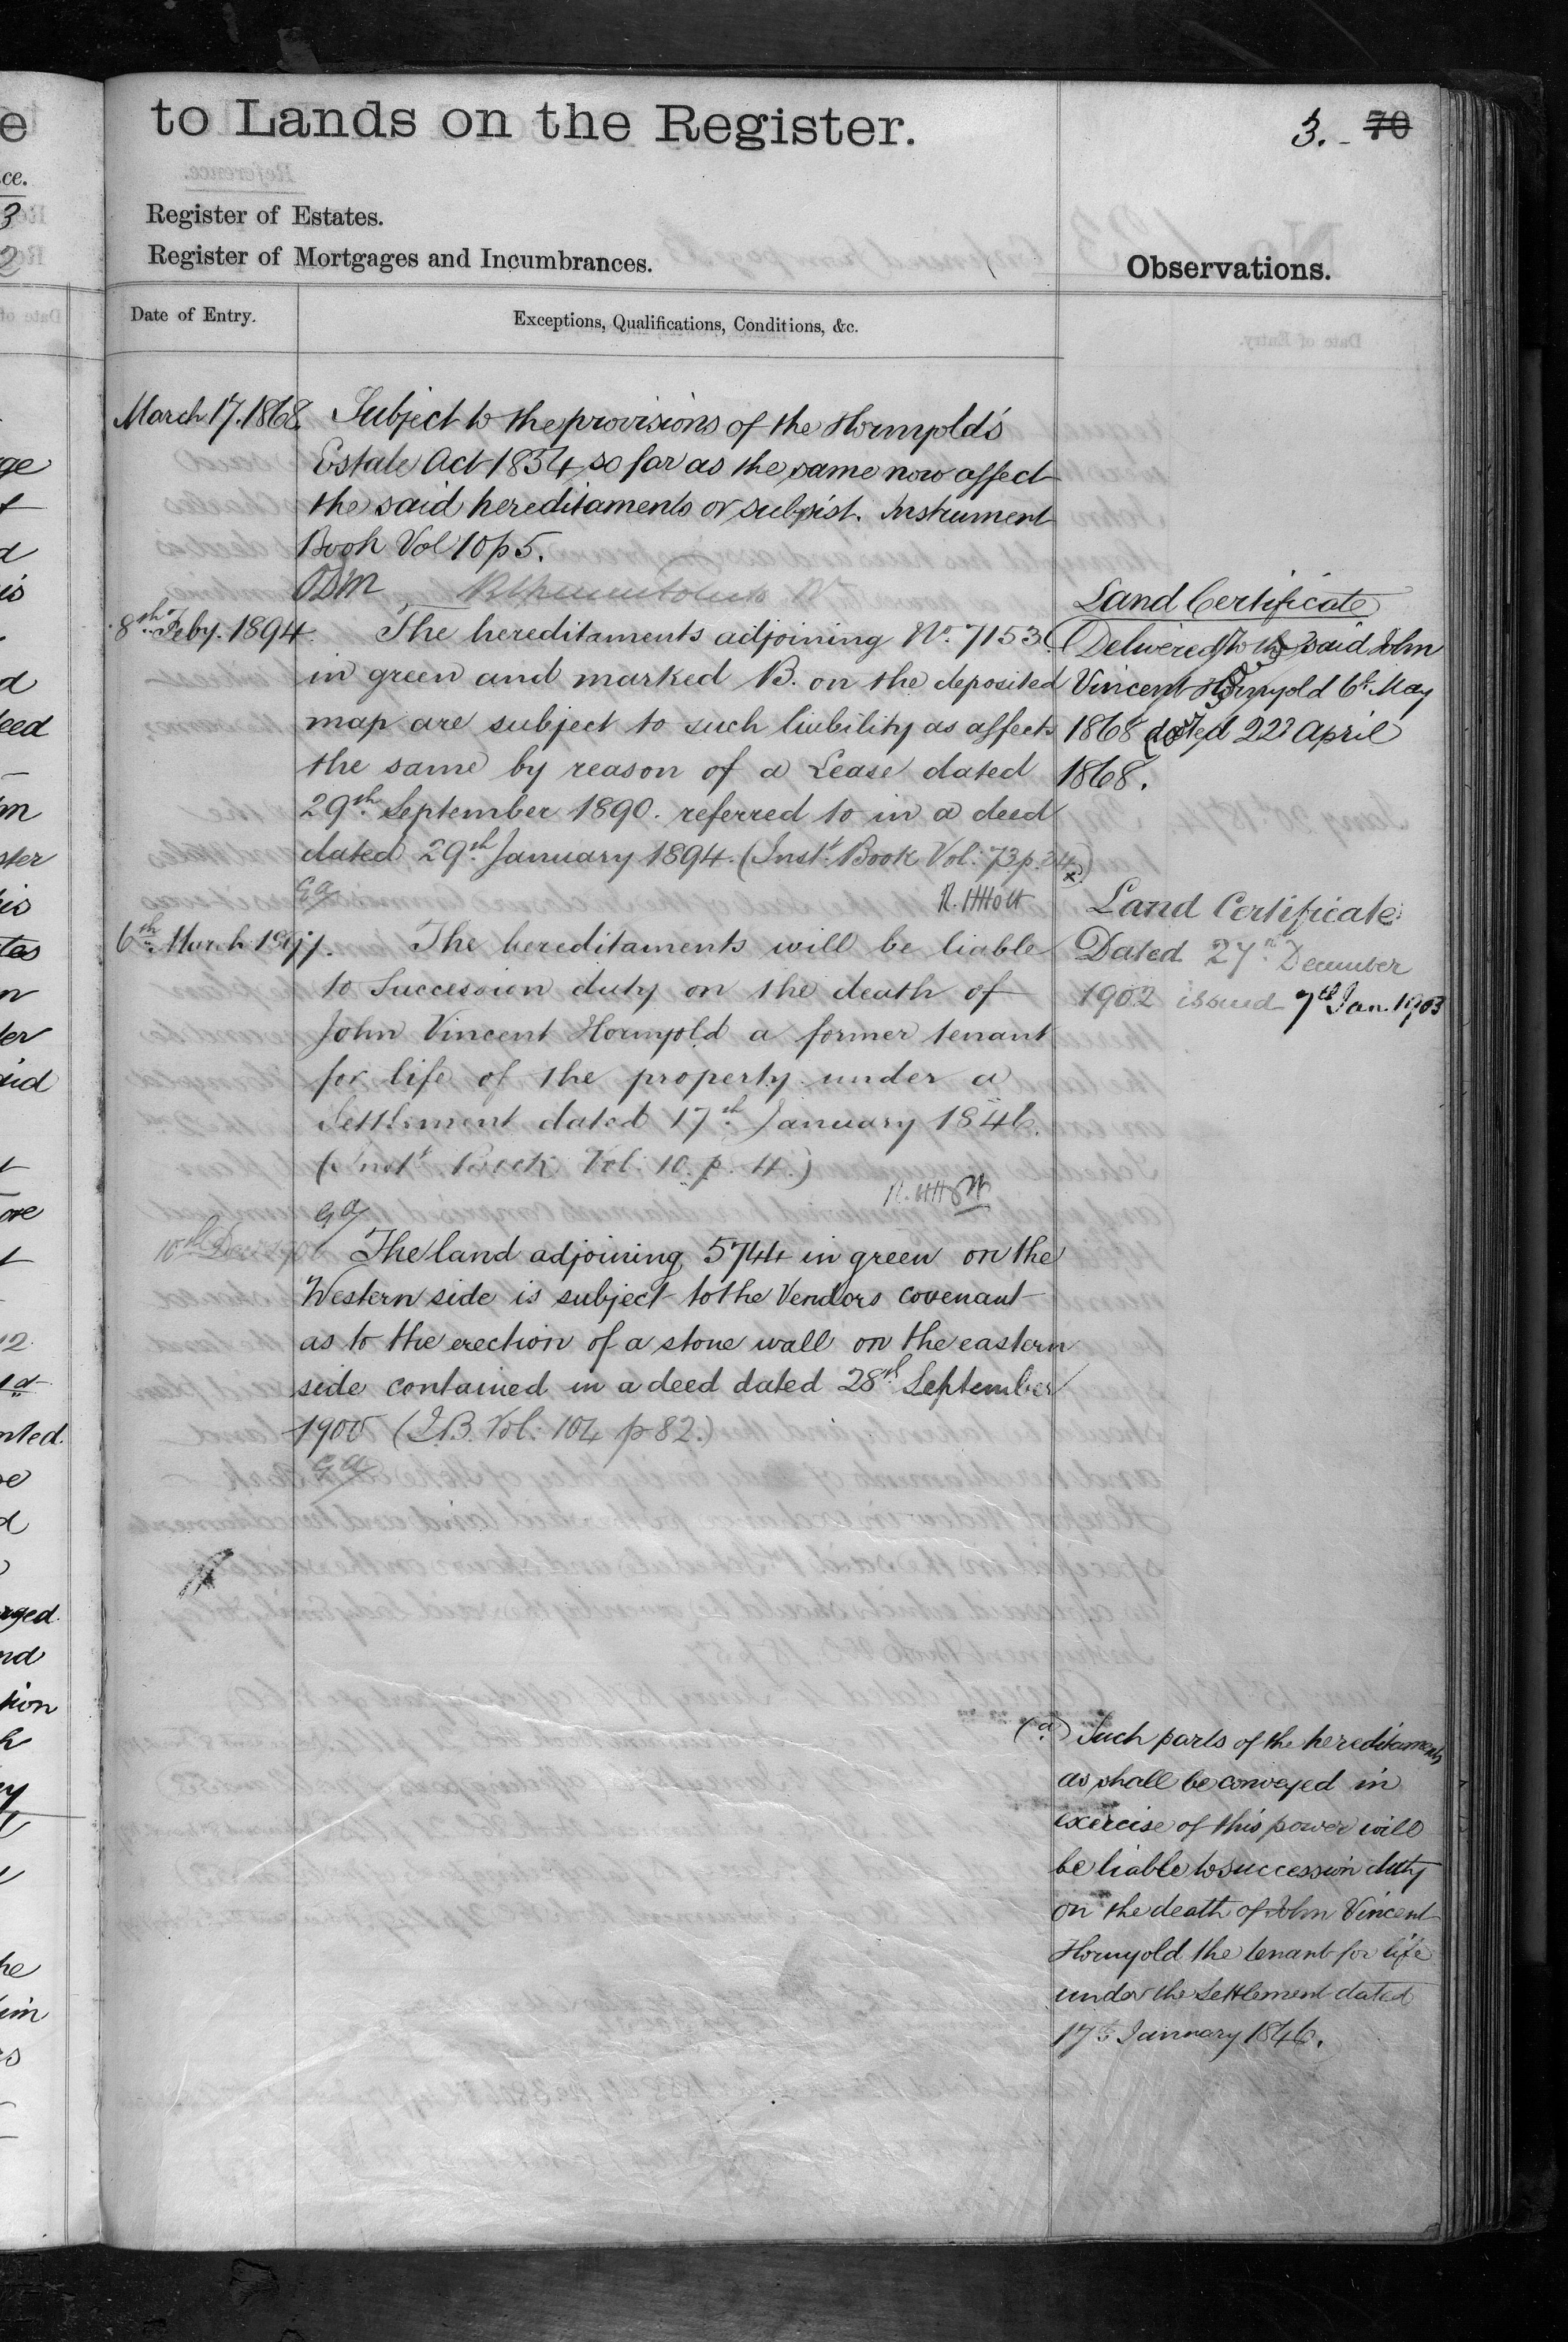 to Lands on the Register.
3. - 70
Register of Estates.
Register of Mortgages and Incumbrances.
Observations.
Date of Entry.
Exceptions, Qualifications, Conditions, &c.
March 17. 1868. Subject to the provisions of the Hornyold's
Estate Act 1854, so far as the same now affect
the said hereditaments or subsist. Instrument
Book Vol 10 p 5.
8th Feby. 1894. The hereditaments adjoining No. 7153
in green and marked B. on the deposited
map are subject to such liability as affects
the same by reason of a Lease dated
29th September 1890. referred to in a deed
dated 29th January 1894. (Inst. Book Vol: 73 p. 34)
G a
R. H Holt
6th March 1897. The hereditaments will be liable
to Succession duty on the death of
John Vincent Hornyold a former tenant
for life of the property under a
Settlement dated 17th January 1846.
(Inst. Book Vol. 10. p. 4.)
R. H Holt
G a
10th Dec. 1900 The land adjoining 5744 in green on the
Western side is subject to the Vendors covenant
as to the erection of a stone wall on the eastern
side contained in a deed dated 28th September
1900 (I.B. Vol: 104 p 82.)
G a
Land Certificate
Delivered to the said John
Vincent Hornyold 6th May
1868 dated 22d April
1868.
Land Certificate
Dated 27th December
1902 issued 7th Jan. 1903
(a) Such parts of the hereditaments
as shall be conveyed in
exercise of this power will
be liable to succession duty
on the death of John Vincent
Hornyold the tenant for life
under the Settlement dated
17th January 1846.